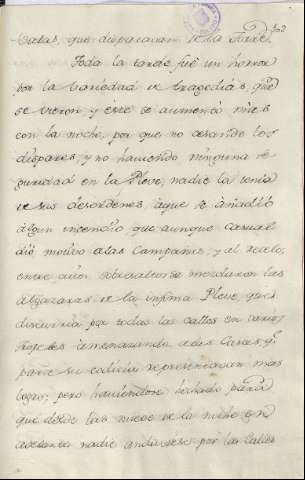 Valas, que disparavan de la Torre.
Toda la tarde fué un horror
por la variedad de tragedias, que
se vieron, y este se aumentó mas
con la noche, por que no cesando los
disparos, y no haviendo ninguna se
guridad en la Pleve, nadie la tenia
de sus desordenes, aque se añadió
algun incendio que aunque casual
dió motivo alas Campanas, y al recelo,
entre cuios sobresaltos se mezclaron las
algazaras de la infima Pleve que
discurria por todas las calles en varios
tropeles amenazando alas Casas, q.e
para su codicia representavan mas
logro; pero haviendose hechado
que desde las nueve de la noche en
adelante nadie anduviese por las Calles